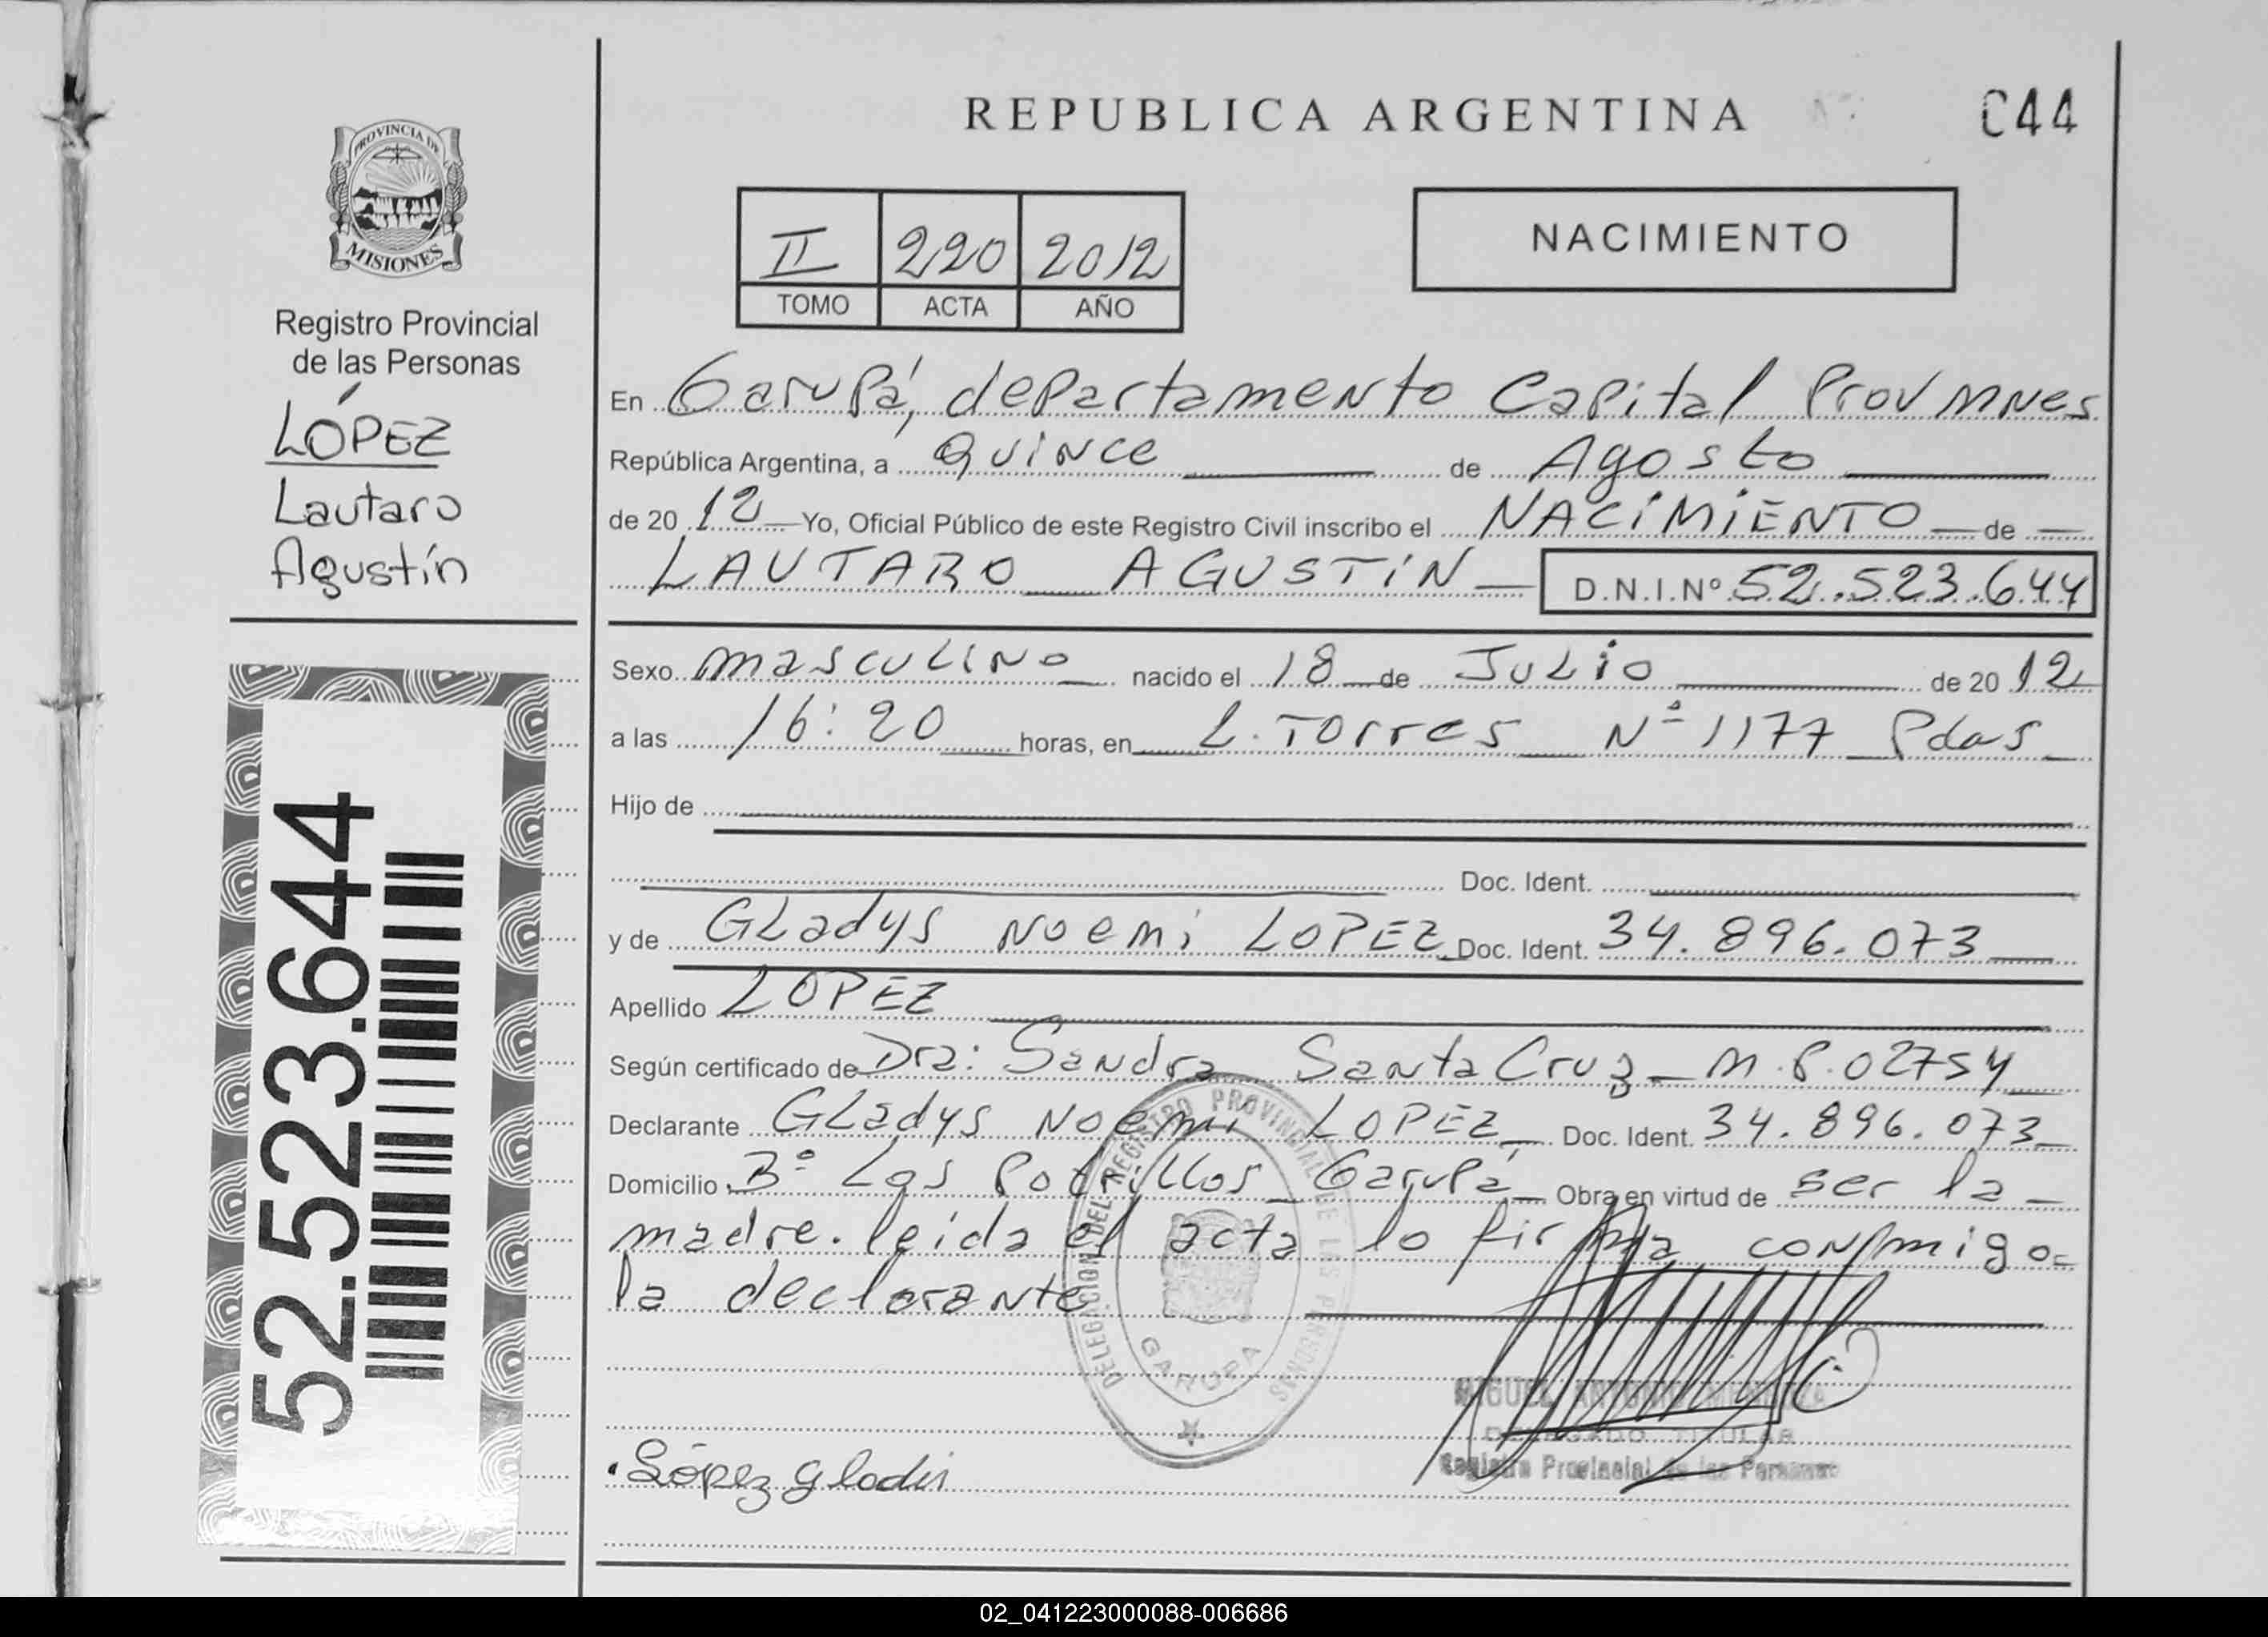 REPUBLICA ARGENTINA
C44
PROVINCIA DE
MISIONES
Registro Provincial
de las Personas
LÓPEZ
Lautaro
Agustín
II 220 2012
TOMO ACTA AÑO
NACIMIENTO
En Garupá, departamento Capital Prov Mnes
República Argentina, a Quince de Agosto
de 20 12 Yo, Oficial Público de este Registro Civil inscribo el NACIMIENTO de
LAUTARO AGUSTIN D.N.I.Nº 52.523.644
Sexo masculino nacido el 18 de Julio de 20 12
a las 16:20 horas, en L. Torres Nº 1177 Pdas
Hijo de
Doc. Ident.
y de Gladys Noemi LOPEZ Doc. Ident. 34.896.073
Apellido LOPEZ
Según certificado de Dra: Sandra Santa Cruz M.P.02754
Declarante Gladys Noemi LOPEZ Doc. Ident. 34.896.073
Domicilio Bº Las Potrillos Garupá Obra en virtud de ser la
madre. leida el acta lo firma conmigo
la declarante
DELEGACION DEL REGISTRO PROVINCIAL DE LAS PERSONAS
GARUPA
MIGUEL ANTONIO
DELEGADO TITULAR
Registro Provincial de las Personas
López Gladis
52.523.644
02_041223000088-006686